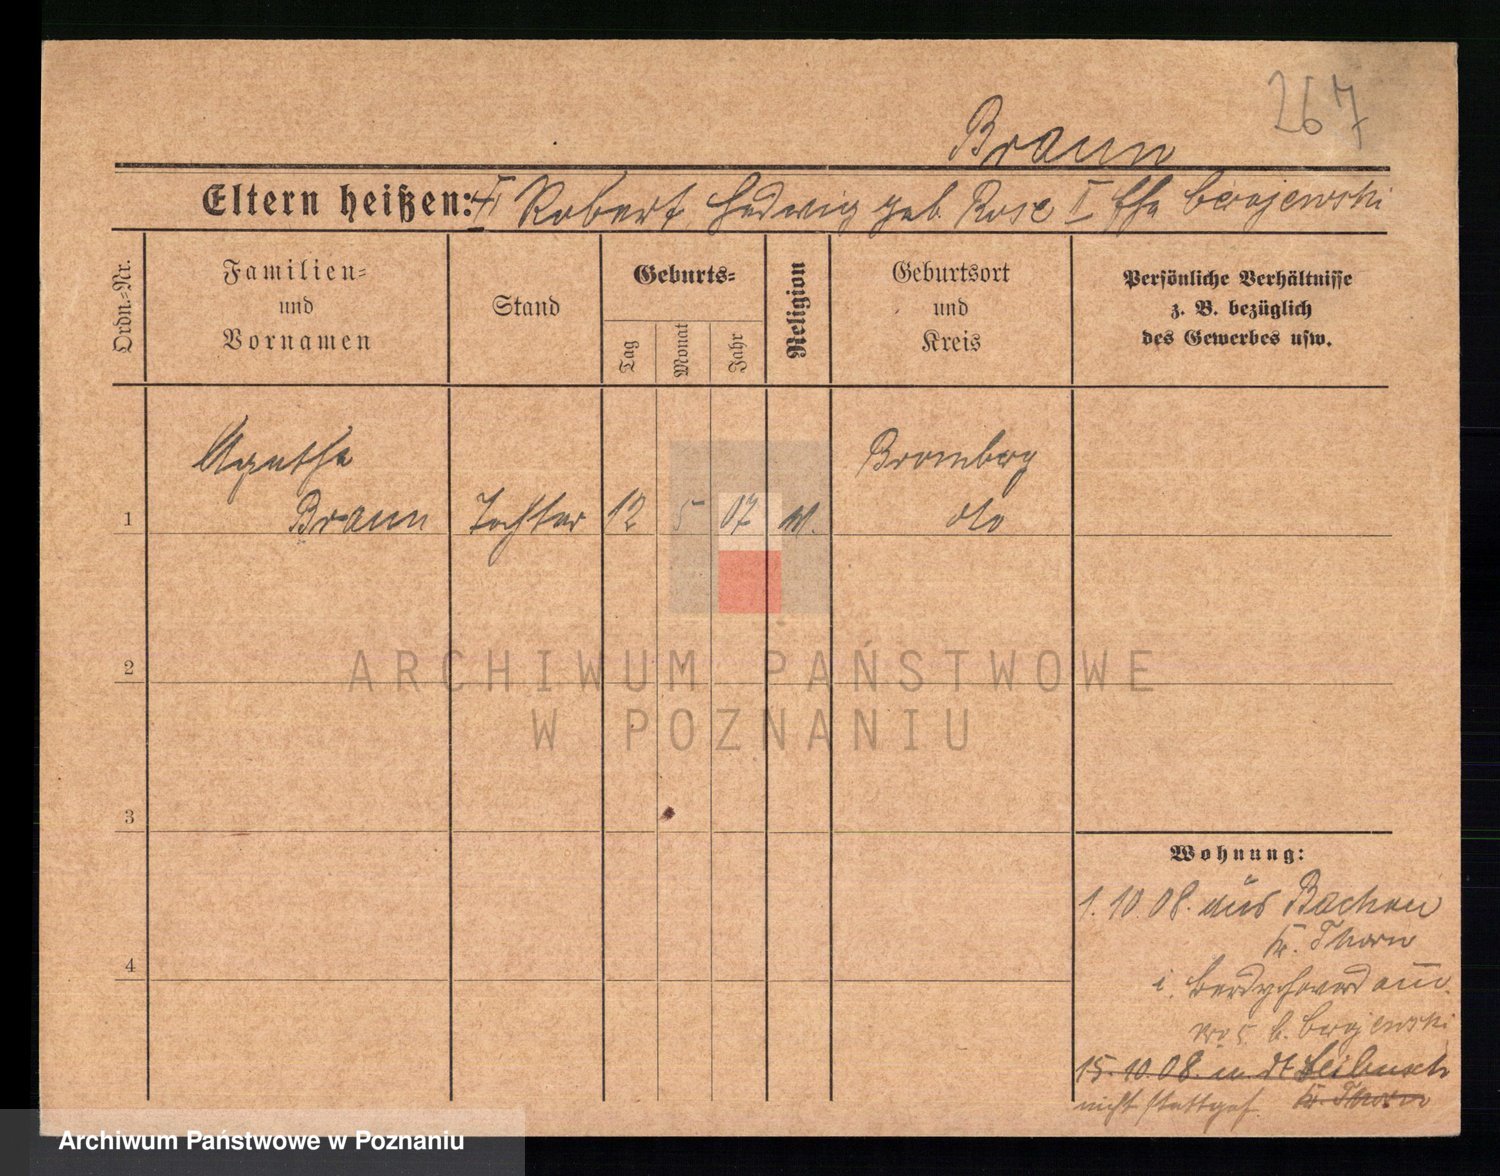 267
Braun
Eltern heißen: I Robert, Hedwig geb. Rose II Ehe
Ordn.-Nr.
Familien-
und
Vornamen
Stand
Geburts-
Tag
Monat
Jahr
Religion
Geburtsort
und
Kreis
Persönliche Verhältnisse
z. B. bezüglich
des Gewerbes usw.
Agathe
Bromberg
1 Braun Tochter 12 5 07 dto
2
ARCHIWUM PAŃSTWOWE
W POZNANIU
3
Wohnung:
1. 10. 08. aus
Kr. Thorn
4
i.
15. 10. 08. n. Leibitsch
nicht stattgef. Kr. Thorn
Archiwum Państwowe w Poznaniu